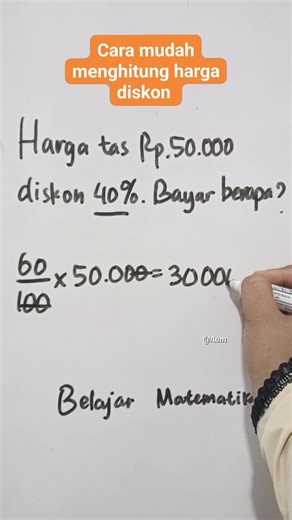 Cara mudah
menghitung harga
diskon
Harga tas Rp.50.000
diskon 40%. Bayar berapa?
60
100 x 50.000 = 3000
Belajar Matematika